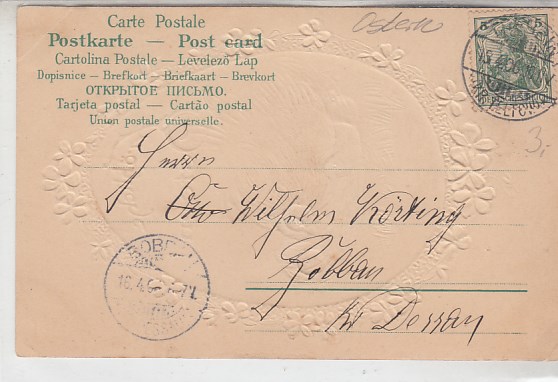 Carte Postale
Postkarte — Post card
Cartolina Postale — Levelező Lap
Dopisnice — Brefkort — Briefkaart — Brevkort
ОТКРЫТОЕ ПИСЬМО.
Tarjeta postal — Cartão postal
Union postale universelle.
Ostern
5
3,-
Herrn
Otto Wilhelm Körting
Kr Dessau